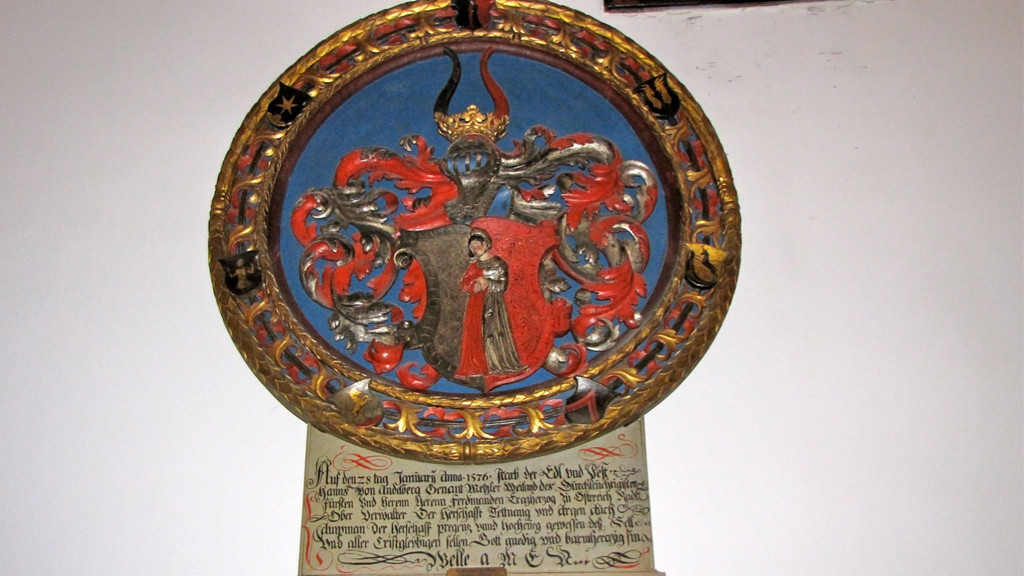 Auf den 28 tag Januarÿ Anno 1576 starb der Edl vnd Vest
Hanns von Andlberg Genant Metzler Weiland des Durchleichtigisten
Fürsten Vnd Herrn Herrn Ferdinanden Ertzhertzog zu Ostreich
Ober Verwalter Der Herschafft Tettnang vnd Argen Auch
Haupman der Herschafft pregentz vnnd Hochenegg gewessen des Sell
Vnd aller Cristgleubigen sellen Gott gnedig vnd barmhertzig sin
Welle a M E N